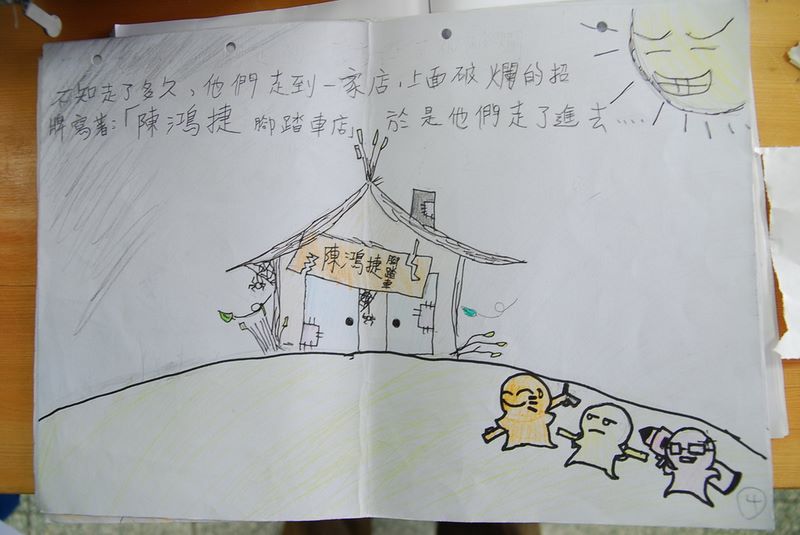 不知走了多久，他們走到一家店，上面破爛的招
牌寫著:「陳鴻捷 腳踏車店」於是他們走了進去.....
陳鴻捷 腳踏車
4